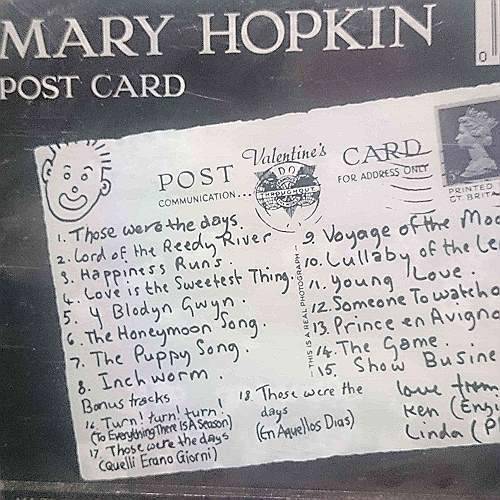 MARY HOPKIN
POST CARD
0
POST Valentine's CARD
COMMUNICATION... FOR ADDRESS ONLY
THROUGHOUT
PRINTED
GT. BRITA
THIS IS A REAL PHOTOGRAPH
1. Those were the days.
2. Lord of the Reedy River
3. Happiness Runs.
4. Love is the Sweetest Thing.
5. Y Blodyn Gwyn.
6. The Honeymoon Song.
7. The Puppy Song.
8. Inch worm
Bonus tracks
16. Turn! turn! turn!
(To Everything There IS A Season)
17. Those were the days
(Quelli Erano Giorni)
18. Those were the
days
(En Aquellos Dias)
9. Voyage of the Moo
10. Lullaby of the Le
11. Young Love.
12. Someone To watch o
13. Prince en Avigno
14. The Game.
15. Show Busine
love from
Ken (Eng
Linda (P